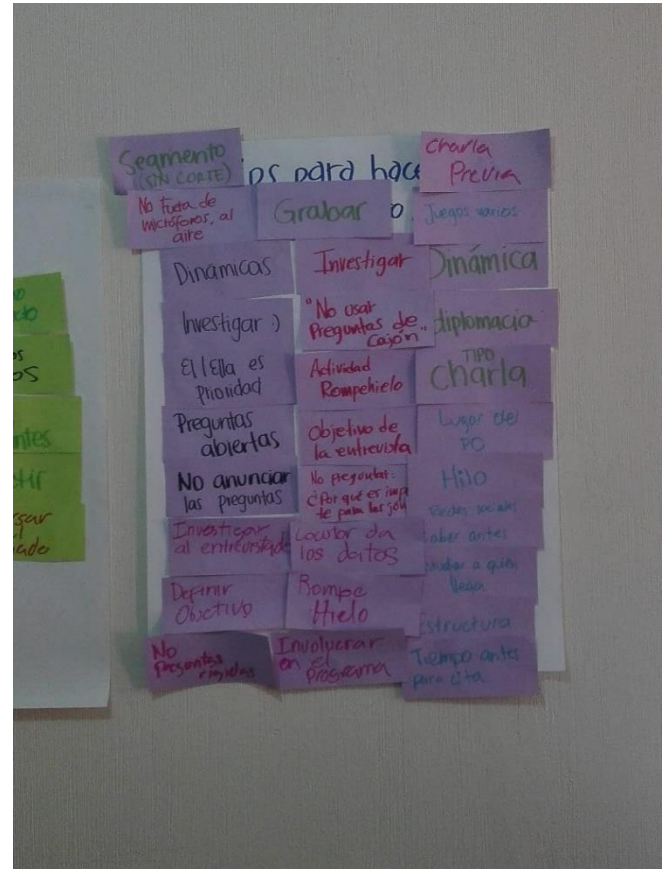 Segmento
(SIN CORTE)
ps para hace
Charla
Previa
No fuera de
micrófonos, al
aire
Grabar
o
Juegos varios
Dinámicas
Investigar
Dinámica
Investigar :)
"No usar
Preguntas de
cajón"
diplomacia
El/Ella es
Prioridad
Actividad
Rompehielo
TIPO
Charla
Preguntas
abiertas
Objetivo de
la entrevista
Lugar del
PO
No anunciar
las preguntas
No preguntar:
¿Por qué es imp
te para los jóv
Hilo
Investigar
al entrevistado
Locutor da
los datos
Redes sociales
saber antes
Definir
Objetivo
Rompe
Hielo
a quien
llega
Estructura
No
preguntas
rígidas
Involucrar
en el
programa
Tiempo antes
para cita
os
ntes
tir
ado